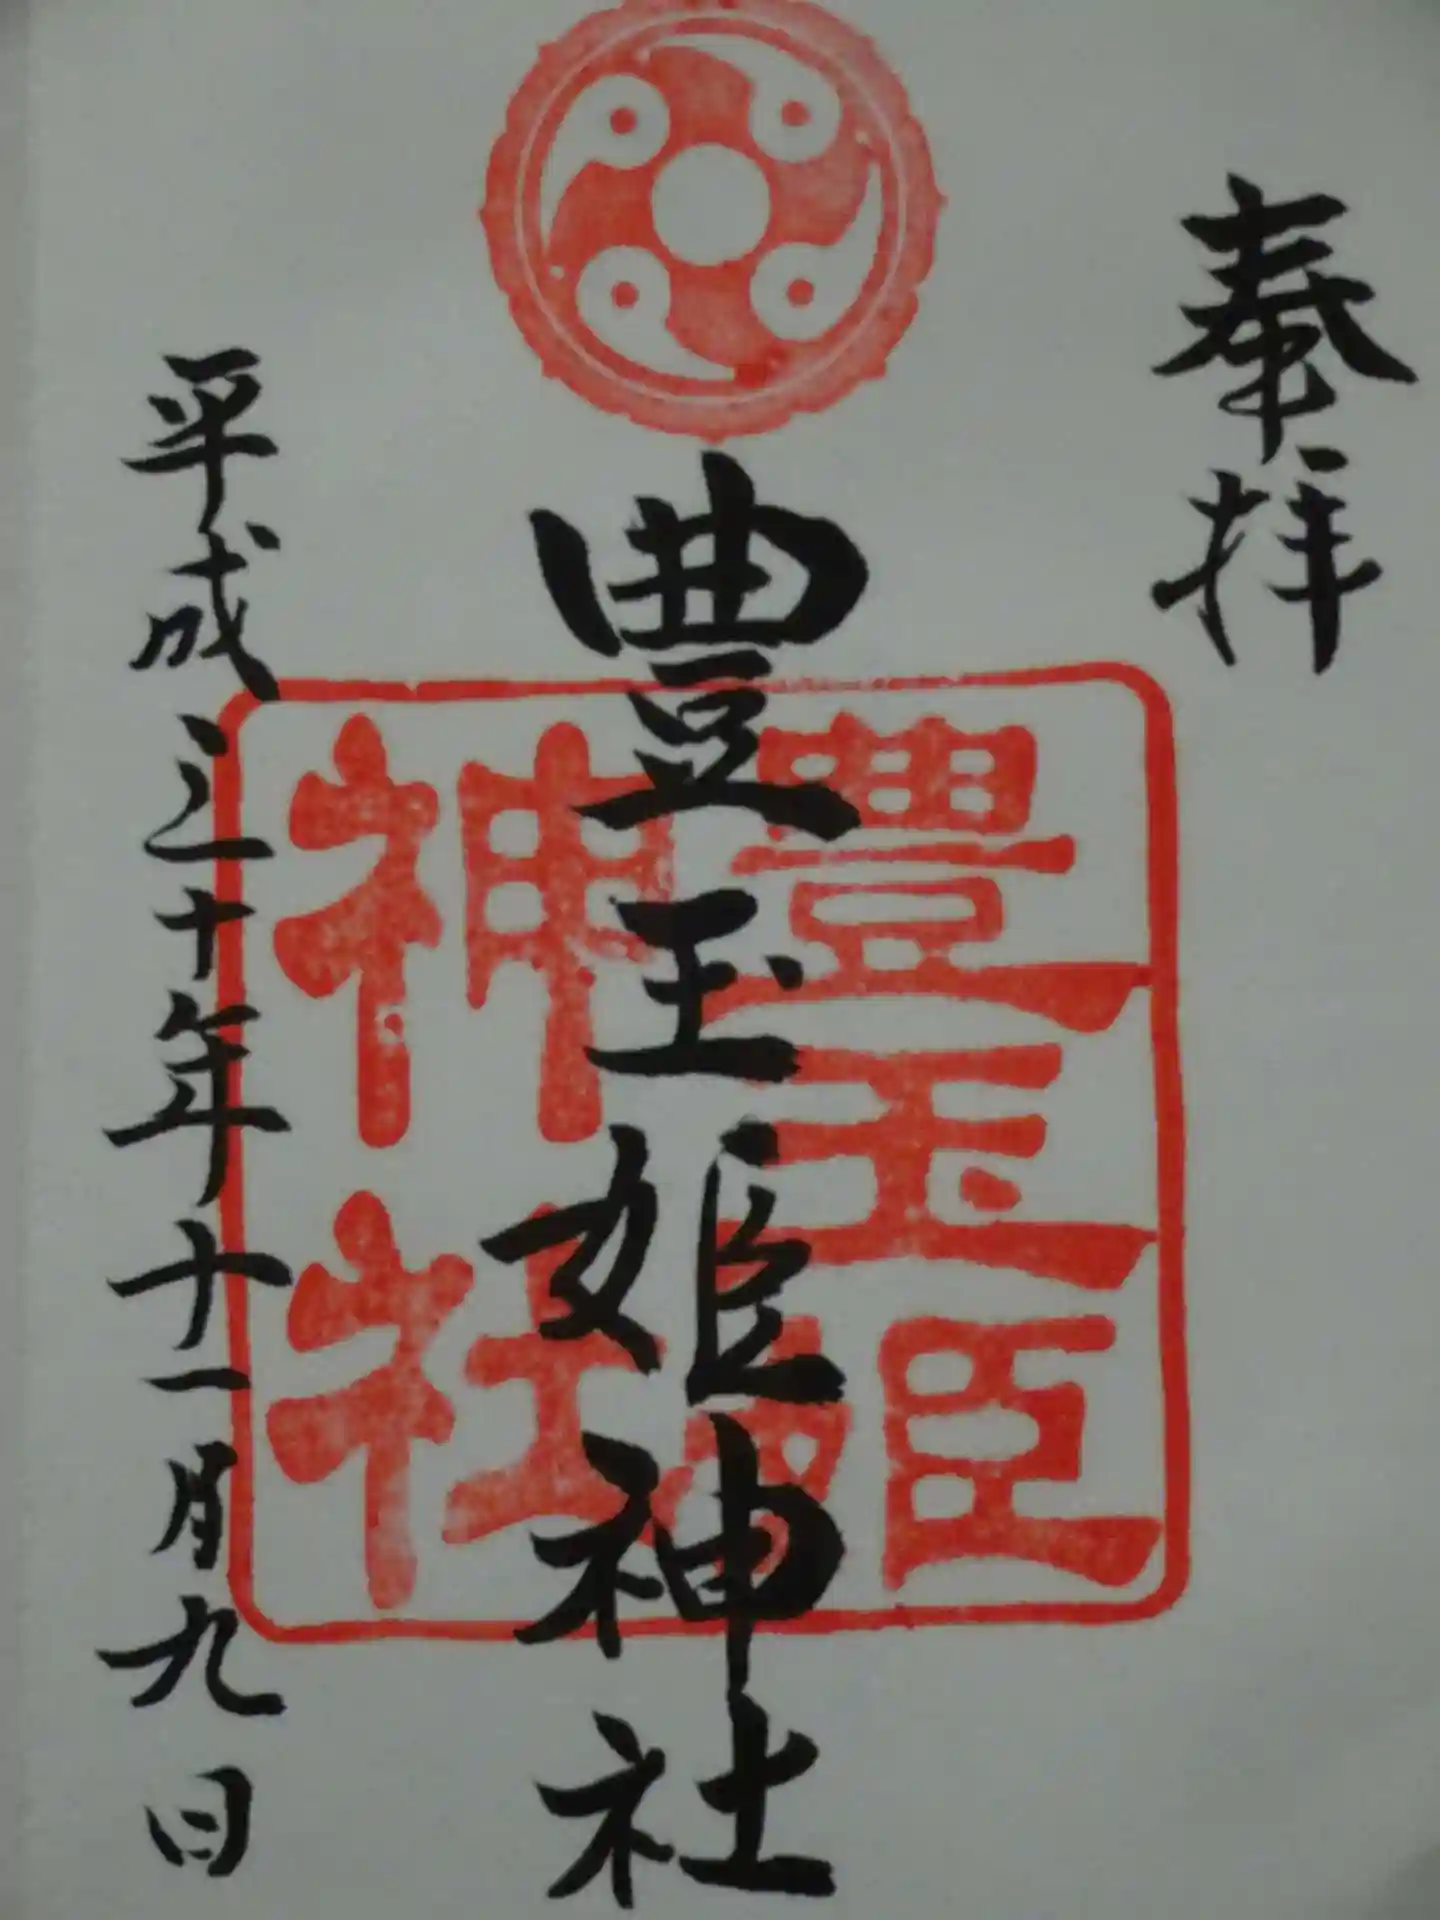 奉拝
豊玉姫神社
豊玉姫
神社
平成三十年十一月九日